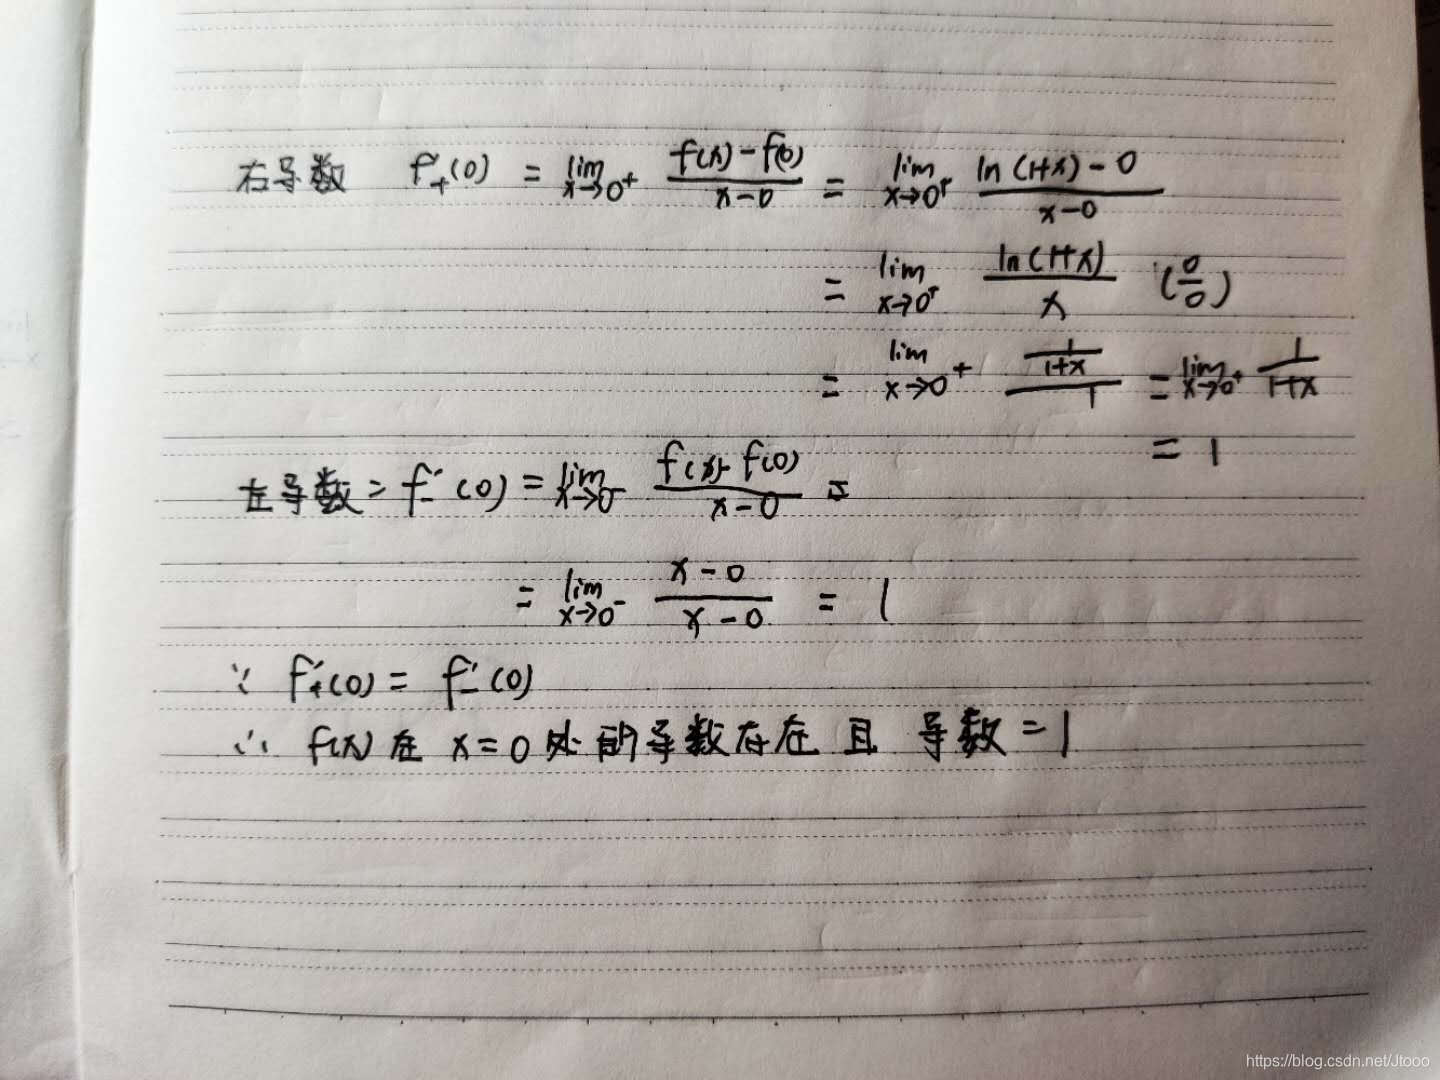 右导数 f'₊(0) = lim x→0⁺ (f(x)-f(0))/(x-0) = lim x→0⁺ (ln(1+x)-0)/(x-0)
= lim x→0⁺ ln(1+x)/x (0/0)
= lim x→0⁺ (1/(1+x))/1 = lim x→0⁺ 1/(1+x)
= 1
左导数 = f'₋(0) = lim x→0⁻ (f(x)-f(0))/(x-0) =
= lim x→0⁻ (x-0)/(x-0) = 1
∵ f'₊(0) = f'₋(0)
∴ f(x) 在 x=0 处的导数存在 且 导数=1
https://blog.csdn.net/Jtooo